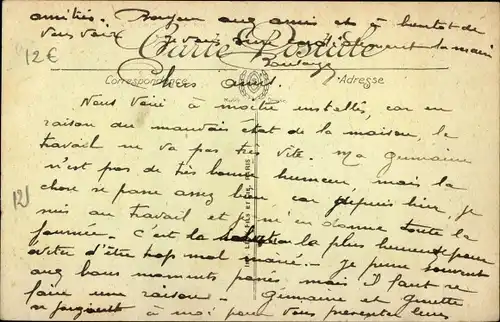 amitiés. Bonjour aux amis et à bientôt de
vous voir. Je vous serre cordialement la main
12€
Carte Postale
Correspondance
Adresse
Chers amis.
Nous voici à moitié installés, car en
raison du mauvais état de la maison, le
travail ne va pas très vite. Ma Germaine
n'est pas de très bonne humeur, mais la
chose se passe assez bien, car depuis hier, je
mis au travail et je m'en donne toute la
journée. C'est la solution la plus heureuse pour
éviter d'être trop mal mené. Je pense souvent
aux bons moments passés mais il faut se
faire une raison. Germaine et Ginette
se joignent à moi pour vous présenter leurs
12
FILS ET CIE, PARIS